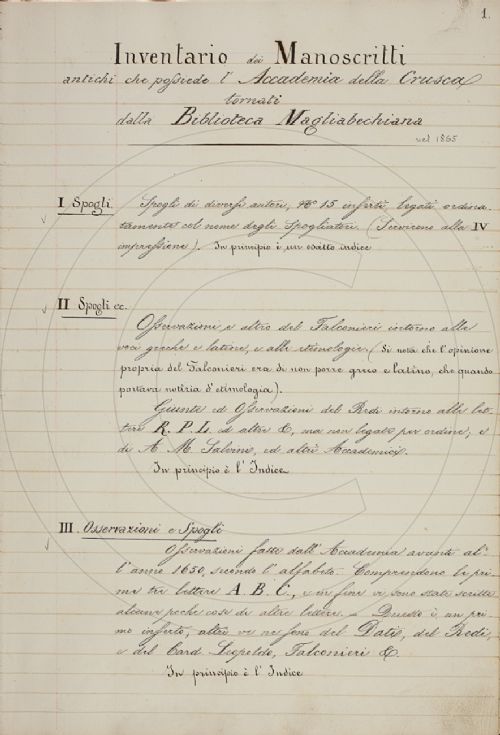 1.
Inventario dei Manoscritti
antichi che possiede l'Accademia della Crusca
tornati
dalla Biblioteca Magliabechiana
nel 1865
I Spogli. Spogli di diversi autori, No 15 inserti legati ordina-
tamente col nome degli Spogliatori. (Servirono alla IV
impressione). In principio è un esatto indice
II Spogli ec.
Osservazioni e altro del Falconieri intorno alle
voci greche e latine, e alle etimologie. (Si nota che l'opinione
propria del Falconieri era di non porre greco e latino, che quando
portava notizia d'etimologia).
Giunte ed Osservazioni del Redi intorno alle let-
tere R. P. L. ed altre &, ma non legate per ordine, e
di A. M. Salvini, ed altri Accademici.
In principio è l'Indice
III Osservazioni e Spogli
Osservazioni fatte dall'Accademia avanti al-
l'anno 1650, secondo l'alfabeto. Comprendono le pri-
me tre lettere A. B. C., e in fine vi sono state scritte
alcune poche cose di altre lettere. = Questo è un pri-
mo inserto, altri ve ne sono del Dati, del Redi,
e del Card. Leopoldo, Falconieri &.
In principio è l'Indice